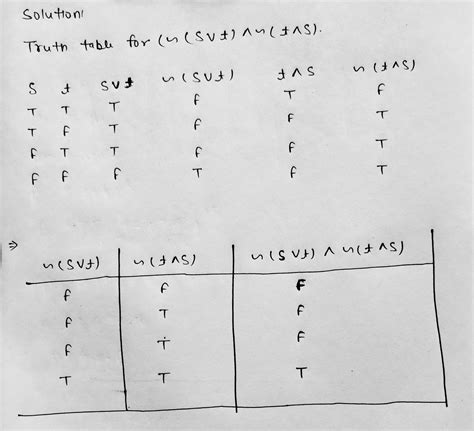 Solution:
Truth table for (~(S∨t) ∧~(t∧S).
S t S∨t ~(S∨t) t∧S ~(t∧S)
T T T F T F
T F T F F T
F T T F F T
F F F T F T
⇒
~(S∨t) ~(t∧S) ~(S∨t) ∧ ~(t∧S)
F F F
F T F
F T F
T T T